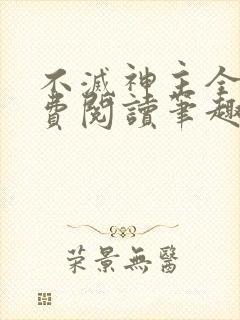 不滅神主全
費閱讀筆趣
荣景無醫